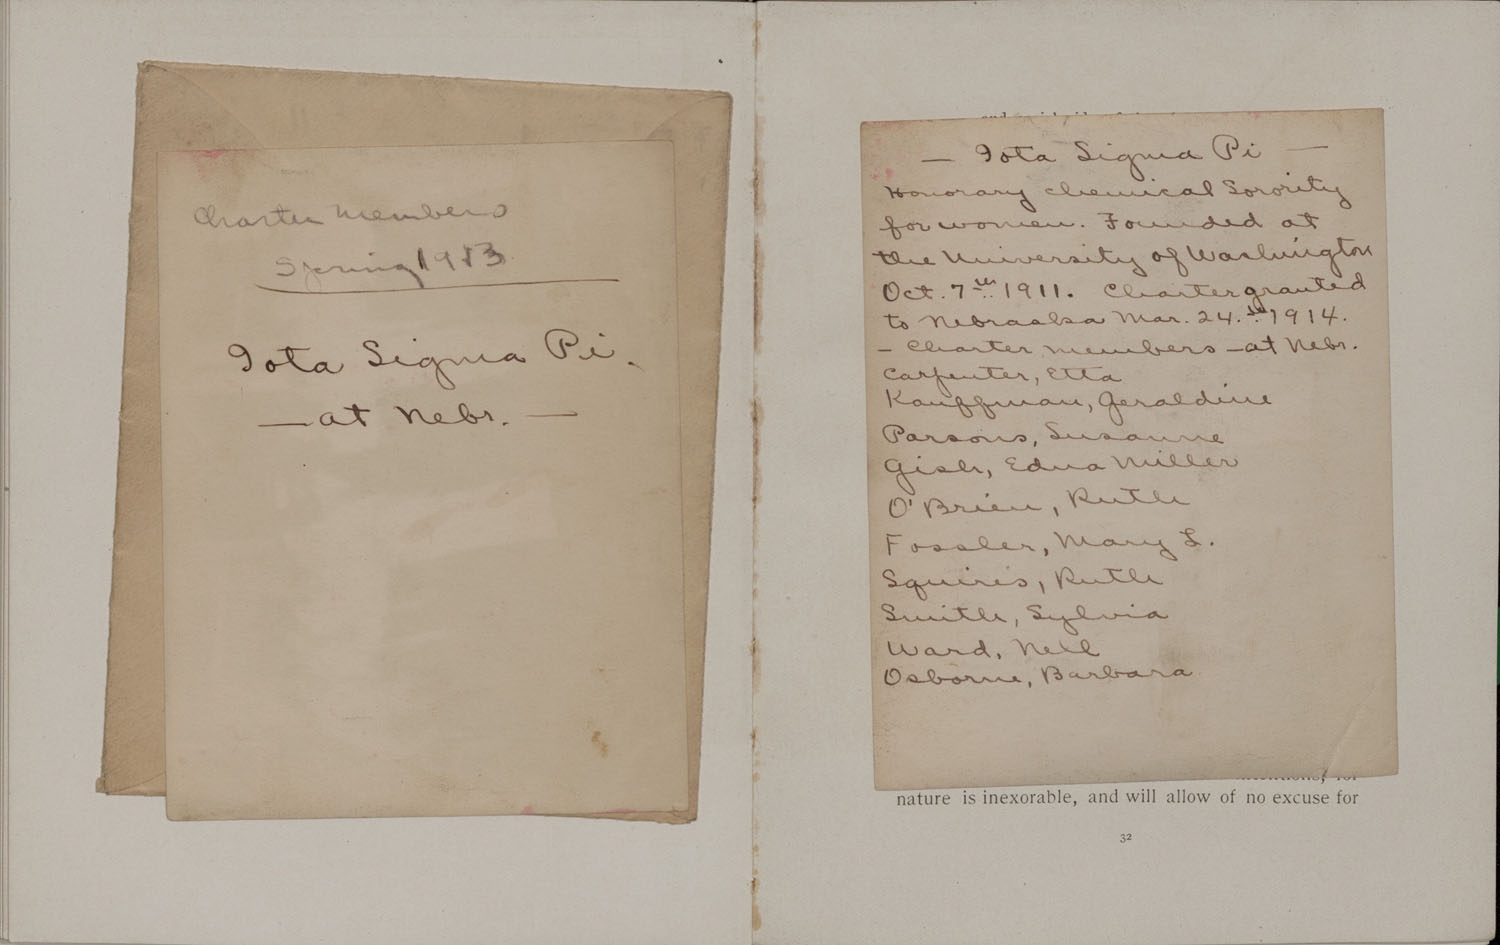 Charter Members
Spring 1913
Iota Sigma Pi.
— at Nebr. —
— Iota Sigma Pi —
Honorary chemical Sorority
for women. Founded at
the University of Washington
Oct. 7th 1911. Charter granted
to Nebraska Mar. 24th 1914.
— Charter members — at Nebr.
Carpenter, Etta
Kauffman, Geraldine
Parsons, Susanne
Gish, Edna Miller
O'Brien, Ruth
Fossler, Mary L.
Squires, Ruth
Smith, Sylvia
Ward, Nell
Osborne, Barbara
nature is inexorable, and will allow of no excuse for
32